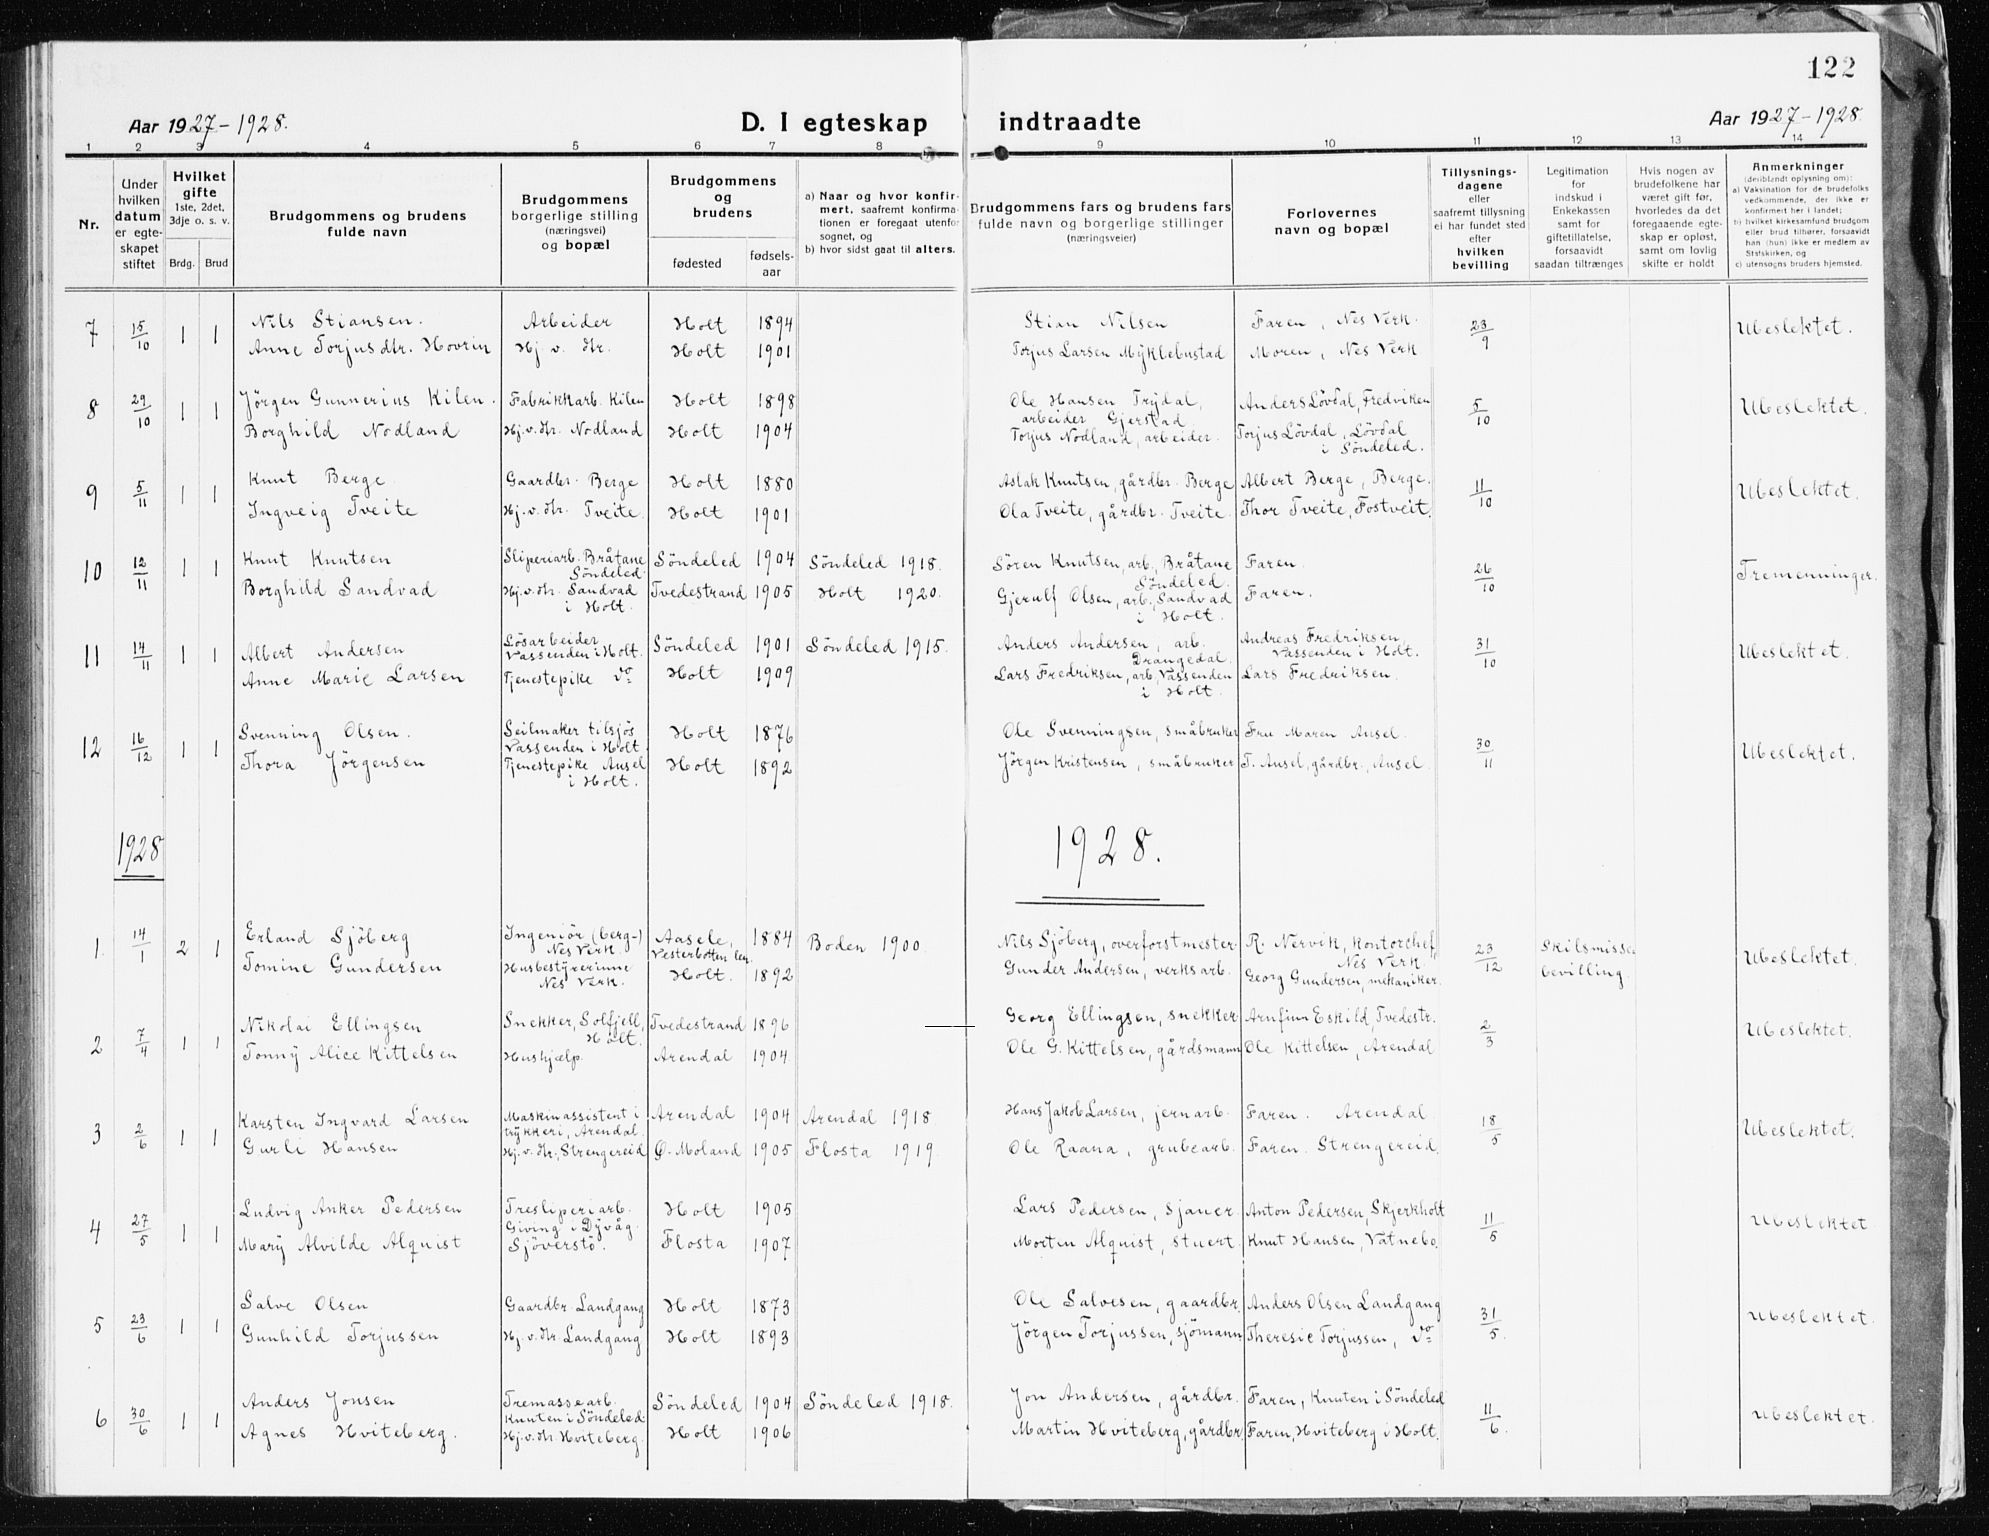 122
Aar 1927-1928.
D. I egteskap indtraadte
Aar 1927-1928.
1 2 3 4 5 6 7 8 9 10 11 12 13 14
Nr.
Under hvilken datum er egteskapet stiftet
Hvilket gifte 1ste, 2det, 3dje o. s. v.
Brdg. Brud
Brudgommens og brudens fulde navn
Brudgommens borgerlige stilling (næringsvei) og bopæl
Brudgommens og brudens
fødested
fødselsaar
a) Naar og hvor konfirmert, saafremt konfirmationen er foregaat utenfor sognet, og
b) hvor sidst gaat til alters.
Brudgommens fars og brudens fars fulde navn og borgerlige stillinger (næringsveier)
Forlovernes navn og bopæl
Tillysningsdagene eller saafremt tillysning ei har fundet sted efter hvilken bevilling
Legitimation for indskud i Enkekassen samt for giftetillatelse, forsaavidt saadan tiltrænges
Hvis nogen av brudefolkene har været gift før, hvorledes da det foregaaende egteskap er opløst, samt om lovlig skifte er holdt
Anmerkninger (deriblandt oplysning om):
a) Vaksination for de brudefolks vedkommende, der ikke er konfirmert her i landet;
b) hvilket kirkesamfund brudgom eller brud tilhører, forsaavidt han (hun) ikke er medlem av Statskirken, og
c) utensogns bruders hjemsted.
7 15/10 1 1 Nils Stiansen. Arbeider Holt 1894 Stian Nilsen Faren, Nes Verk. 23/9 Ubeslektet.
Anne Torjusdtr. Hovrin Hj. v. Hr. Holt 1901 Torjus Larsen Myklebustad Moren, Nes Verk
8 29/10 1 1 Jörgen Gunnerius Kilen. Fabrikkarb. Kilen Holt 1898 Ole Hansen Trydal, arbeider Gjerstad Anders Lövdal, Fredviken 5/10 Ubeslektet.
Borghild Nodland Hj. v. Hr. Nodland Holt 1904 Torjus Nodland, arbeider. Torjus Lövdal, Lövdal i Söndeled.
9 5/11 1 1 Knut Berge. Gaardbr. Berge Holt 1880 Aslak Knutsen, gårdbr. Berge Albert Berge, Berge. 11/10 Ubeslektet.
Ingveig Tveite Hj. v. Hr. Tveite. Holt 1901 Ola Tveite, gårdbr. Tveite. Thor Tveite, Fostveit.
10 12/11 1 1 Knut Knutsen Sliperiarb. Bråtane Söndeled. Söndeled 1904 Söndeled 1918. Sören Knutsen, arb., Bråtane Söndeled. Faren. 26/10 Tremenninger.
Borghild Sandvad Hj. v. Hr. Sandvad i Holt. Tvedestrand 1905 Holt 1920. Gjerulf Olsen, arb., Sandvad i Holt. Faren.
11 14/11 1 1 Albert Andersen Lösarbeider Vassenden i Holt. Söndeled 1901 Söndeled 1915. Anders Andersen, arb. Drangedal. Andreas Fredriksen, Vassenden i Holt. 31/10 Ubeslektet.
Anne Marie Larsen Tjenestepike do Holt 1909 Lars Fredriksen, arb., Vassenden i Holt. Lars Fredriksen.
12 16/12 1 1 Svenning Olsen. Seilmaker tilsjös Vassenden i Holt. Holt 1876 Ole Svenningsen, småbruker Fru Maren Ausel. 30/11 Ubeslektet.
Thora Jörgensen Tjenestepike Ausel i Holt. Holt 1892 Jörgen Kristensen, småbruker T. Ausel, gårdbr., Ausel.
1928
1928.
1. 14/1 2 1 Erland Sjöberg Ingeniör (berg-) Nes Verk. Aasele, Vesterbotten len. 1884 Boden 1900. Nils Sjöberg, overforstmester R. Nervik, kontorchef Nes Verk. 23/12 Skilsmisse bevilling. Ubeslektet.
Tomine Gundersen Husbestyrerinne Nes Verk. Holt. 1892 Gunder Andersen, verksarb. Georg Gundersen, mekaniker.
2 7/4 1 1 Nikolai Ellingsen Snekker, Solfjell, Holt. Tvedestrand 1896 Georg Ellingsen, snekker Arnfinn Eskild, Tvedestr. 2/3 Ubeslektet.
Tonny Alice Kittelsen Hushjælp. Arendal 1904 Ole G. Kittelsen, gårdsmann Ole Kittelsen, Arendal
3 2/6 1 1 Karsten Ingvard Larsen Maskinassistent i trykkeri, Arendal Arendal 1904 Arendal 1918 Hans Jakob Larsen, jernarb. Faren. Arendal 18/5 Ubeslektet.
Gurli Hansen Hj. v. Hr., Strengereid Ø. Moland 1905 Flosta 1919. Ole Raana, grubearb. Faren. Strengereid.
4 27/5 1 1 Ludvig Anker Pedersen Tresliperiarb. Giving i Dyvåg. Holt 1905 Lars Pedersen, sjauer Anton Pedersen, Skjerkholt 11/5 Ubeslektet
Mary Alvilde Alquist Sjöverstö. Flosta 1907 Morten Alquist, stuert Knut Hansen, Vatnebo.
5 23/6 1 1 Salve Olsen Gaardbr. Landgang Holt 1873 Ole Salvesen, gaardbr. Anders Olsen Landgang 31/5. Ubeslektet.
Gunhild Torjussen Hj. v. Hr. Landgang Holt 1893 Jörgen Torjussen, sjömann Theresie Torjussen, do
6 30/6 1 1 Anders Jonsen Tremassearb. Knuten i Söndeled. Söndeled 1904 Söndeled 1918. Jon Andersen, gårdbr. Faren, Knuten i Söndeled 11/6. Ubeslektet.
Agnes Hviteberg. Hj. v. Hr. Hviteberg. Holt 1906 Martin Hviteberg, gårdbr. Faren, Hviteberg i Holt.